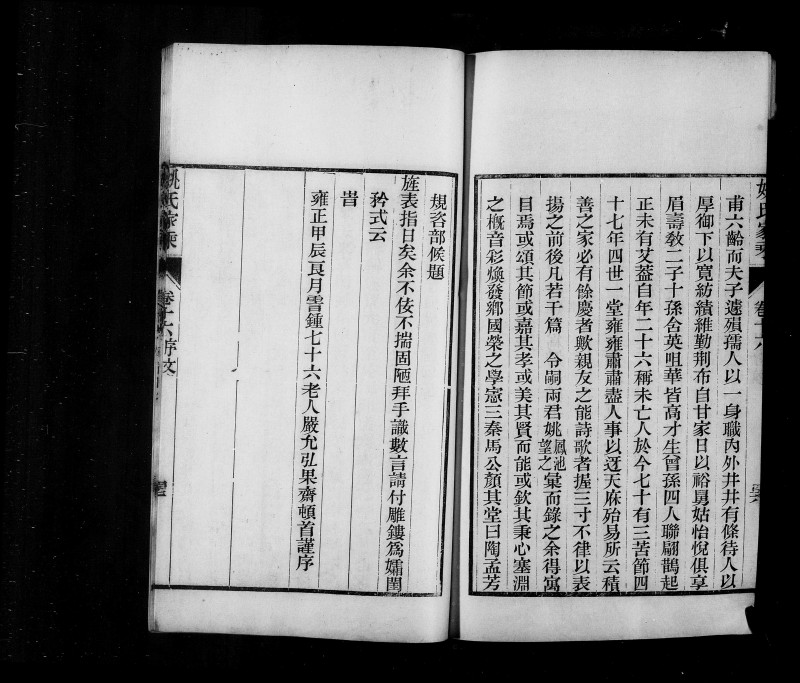 姚氏家乘
卷十六
甫六齡而夫子遽殞孺人以一身職內外井井有條待人以
厚御下以寬紡績維勤荆布自甘家日以裕舅姑怡悅俱享
眉壽敎二子十孫含英咀華皆高才生曾孫四人聯翩鵲起
正未有艾蓋自年二十六稱未亡人於今七十有三苦節四
十七年四世一堂雍雍肅肅盡人事以迓天庥殆易所云積
善之家必有餘慶者歟親友之能詩歌者握三寸不律以表
揚之前後凡若干篇　令嗣兩君姚鳳池望之彙而錄之余得寓
目焉或頌其節或嘉其孝或美其賢而能或欽其秉心塞淵
之概音彩煥發鄉國榮之學憲三秦馬公顏其堂曰陶孟芳
規咨部候題
旌表指日矣余不佞不揣固陋拜手識數言請付雕鏤爲嬬閨
矜式云
旹
雍正甲辰良月雪鍾七十六老人嚴允弘果齋頓首謹序
姚氏家乘
卷十六序文